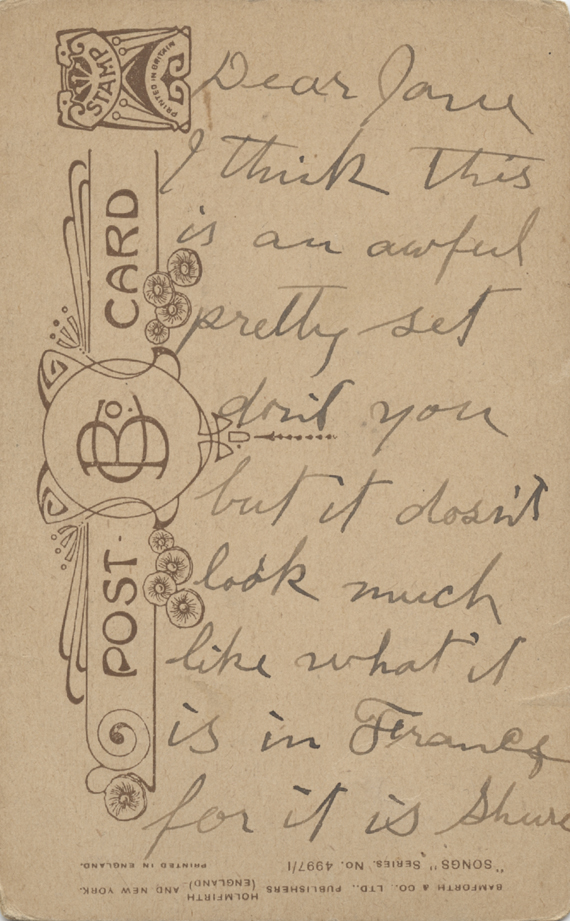 Dear Jane
I think this
is an awful
pretty set
don't you
but it dosn't
look much
like what it
is in France
for it is Shure
STAMP
PRINTED IN BRITAIN
POST-CARD
B. Co.
"SONGS" SERIES. NO. 4997/1
BAMFORTH & CO. LTD., PUBLISHERS, HOLMFIRTH (ENGLAND) AND NEW YORK.
PRINTED IN ENGLAND.